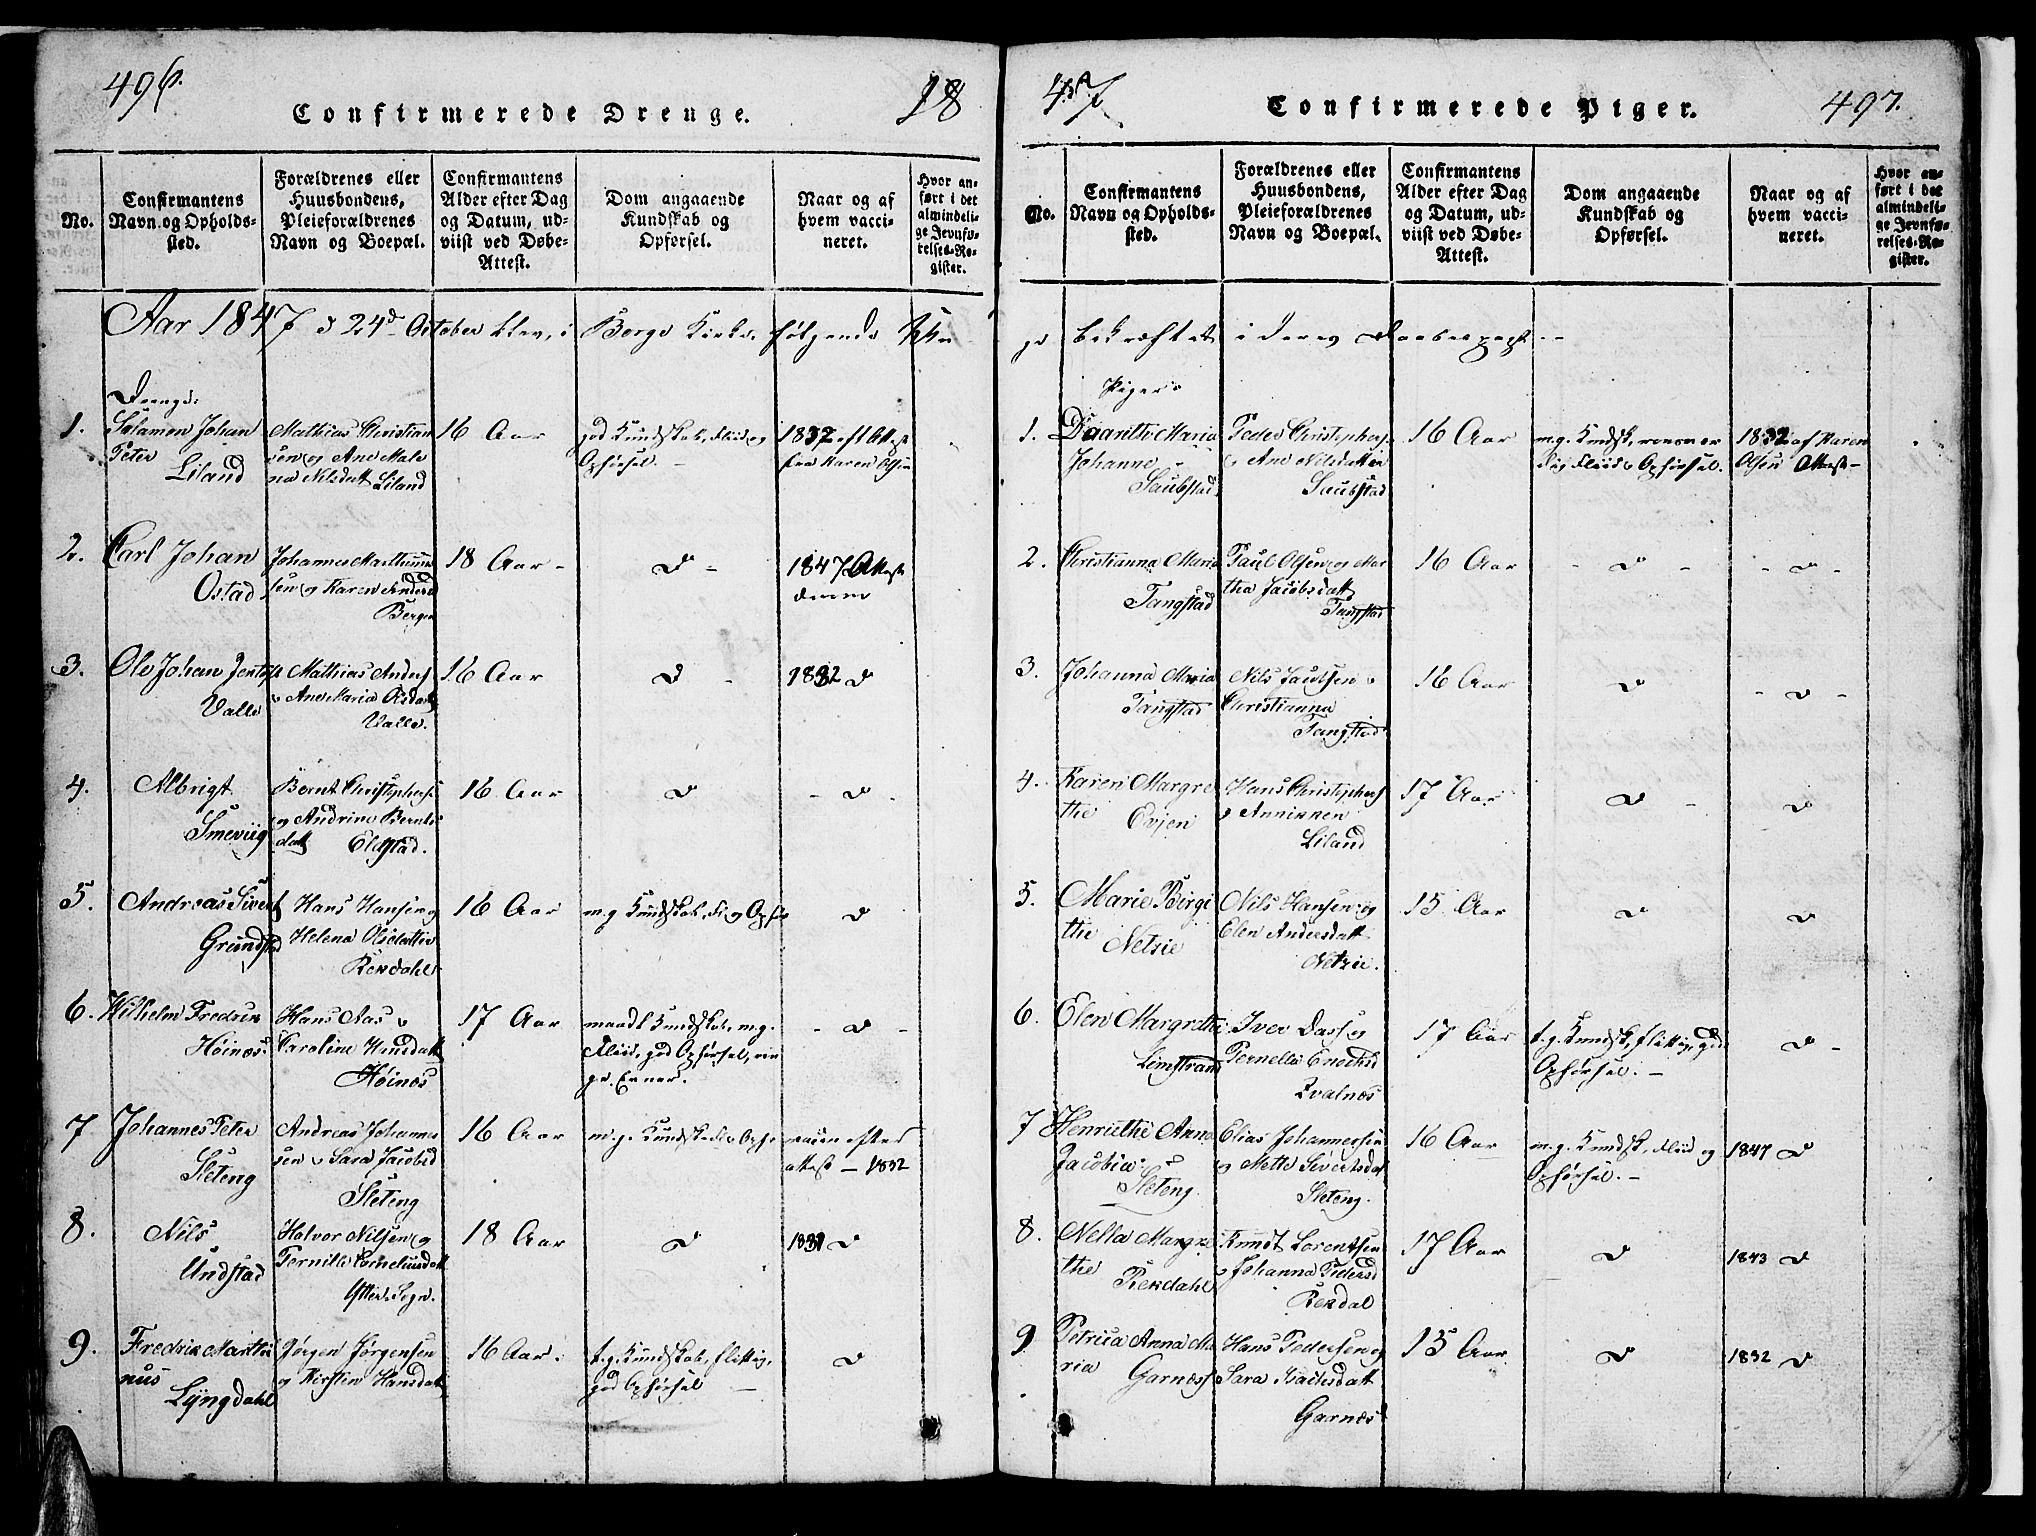 496.
Confirmerede Drenge.
18
No.
Confirmantens Navn og Opholds-sted.
Forældrenes eller Huusbondens, Pleieforældrenes Navn og Boepæl.
Confirmantens Alder efter Dag og Datum, ud-viist ved Døbe-Attest.
Dom angaaende Kundskab og Opførsel.
Naar og af hvem vacci-neret.
Hvor an-ført i det almindeli-ge Jevnfø-relses-Re-gister.
Aar 1847 d 24d October blev i Borge Kirke følgende
Drenge:
1. Salamon Johan Peter Liland
Mathias Christian sen og Ane Male na Nilsdatt Liland
16 Aar
god Kundskab, Fliid og Opførsel. –
1832 eft Attest fra Karen Olsen
2. Carl Johan Ostad
Johannes Marthinus sen og Karen Andersd Bergen
18 Aar –
D –
1847 Attest
3. Ole Johan Jentoft Valle
Mathias Anders Ane Maria Olsdatt Valle.
16 Aar
D –
1832 D
4. Albrigt Smeviig
Bernt Christophers og Andrine Bernts datt Elestad.
16 Aar
D
– D –
5. Andreas Sivert Grundstad
Hans Hansen og Helena Olsdatter Rekdahl
16 Aar
m.g. Kundskab, Fl. og Opførs
D
6. Wilhelm Fredrik Høinæs
Hans Aas Caroline Hansdatt Høinæs
17 Aar
maadl Kundskab, m.g. Fliid, god Opførsel,
– D –
7 Johannes Peter Sleteng
Andreas Johannes sen Sara Jacobsd Sleteng
16 Aar
m.g. Kundsk. Opf.
efter attest – 1832
8. Nils Undstad
Halvor Nilsen og Pernille Corneliusdatt Sogn.
18 Aar
D
1831 D
9. Fredrik Marthi nus Lyngdahl
Jørgen Jørgensen og Kirsten Hansdatt
16 Aar.
t.g. Kundskab, flittig, god Opførsel –
D
47
Confirmerede Piger.
497.
No.
Confirmantens Navn og Opholds-sted.
Forældrenes eller Huusbondens, Pleieforældrenes Navn og Boepæl.
Confirmantens Alder efter Dag og Datum, ud-viist ved Døbe-Attest.
Dom angaaende Kundskab og Opførsel.
Naar og af hvem vacci-neret.
Hvor an-ført i det almindeli-ge Jevnfø-relses-Re-gister.
bekræftet i deres Daabespagt –
Piger:
1. Daarithe Maria Johanne – Saubstad
Peder Christophers Ane Nilsdatter Saubstad
16 Aar
m.g. Kundsk, Fliid Opførsel.
1832 af Karen Olsen Attest –
2. Christianna Maria Tangstad
Paul Olsen og Mar tha Jacobsdatt Tangstad
16 Aar
– D –
– D –
3. Johanna Maria Tangstad
Nils Paulsen Christianna Tangstad
16 Aar
D
– D –
4. Karen Margre the Evjen
Hans Christophers Annikken Liland
17 Aar
D –
D
5. Marie Birgi the Netvie
Nils Hansen og Elen Andersdatt Netvie.
15 Aar
D
D
6. Elen Margrethe Limstrand
Iver Dass og Pernella Enochsd Qvalnæs
17 Aar
t.g. Kundsk, flittig, god Opførsel. –
D –
7 Henriethe Anna Jacobia Sleteng.
Elias Johannessen og Mette Sivertsdat Sleteng.
16 Aar
m.g. Kundsk, Fliid og Opførsel. –
1847 D
8. Nella Margre the Rekdahl
Knudt Lorentsen Johanna Pedersd Rekdal
17 Aar
D
1843 D
9 Petrica Anna Ma ria Garnæs
Hans Pedersen og Sara Isachsdatt Garnæs
15 Aar
D
1832 D